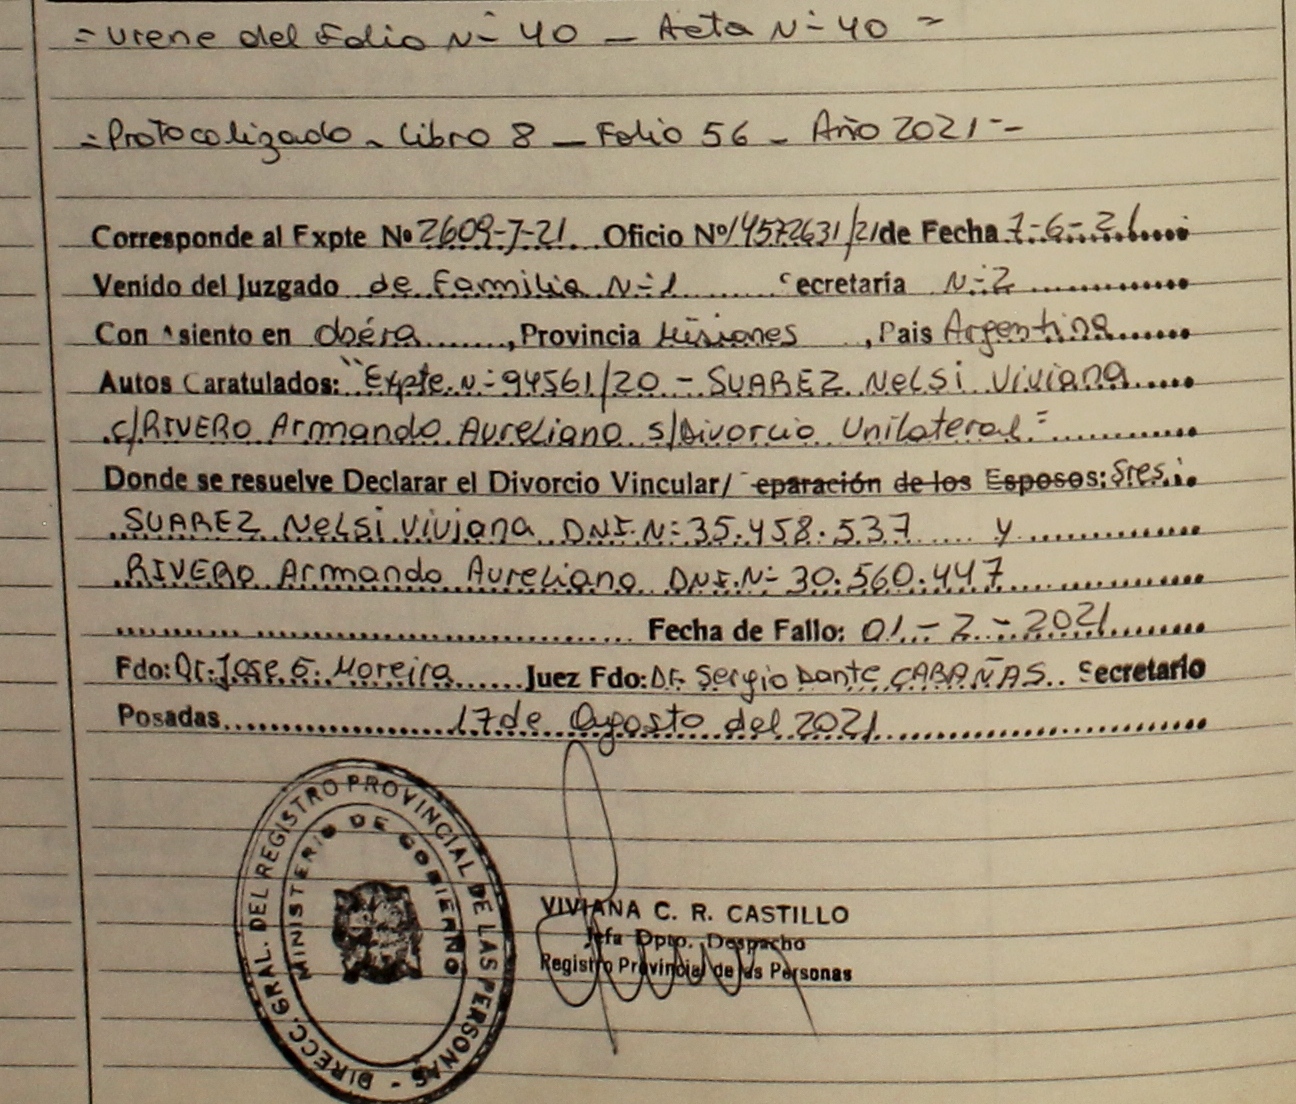 = viene del Folio N- 40 - Acta N- 40 =
= Protocolizado - Libro 8 - Folio 56 - Año 2021 --
Corresponde al Expte Nº 2609-7-21 Oficio Nº 14572631/21 de Fecha 7-6-21
Venido del Juzgado de Familia N-1 Secretaría N-2
Con Asiento en Oberá, Provincia Misiones, Pais Argentina
Autos Caratulados: "Expte. N- 94561/20 - SUAREZ Nelsi Viviana
c/RIVERO Armando Aureliano s/Divorcio Unilateral"
Donde se resuelve Declarar el Divorcio Vincular/ eparación de los Esposos: Sres.
SUAREZ Nelsi Viviana DNI. N- 35.458.537 y
RIVERO Armando Aureliano DNI. N- 30.560.447
Fecha de Fallo: 01 - 2 - 2021
Fdo: Dr. Jose G. Moreira Juez Fdo: Dr. Sergio Dante CABAÑAS. Secretario
Posadas 17 de Agosto del 2021
DIRECC. GRAL. DEL REGISTRO PROVINCIAL DE LAS PERSONAS -
MINISTERIO DE GOBIERNO
VIVIANA C. R. CASTILLO
Jefa Dpto. Despacho
Registro Provincial de las Personas